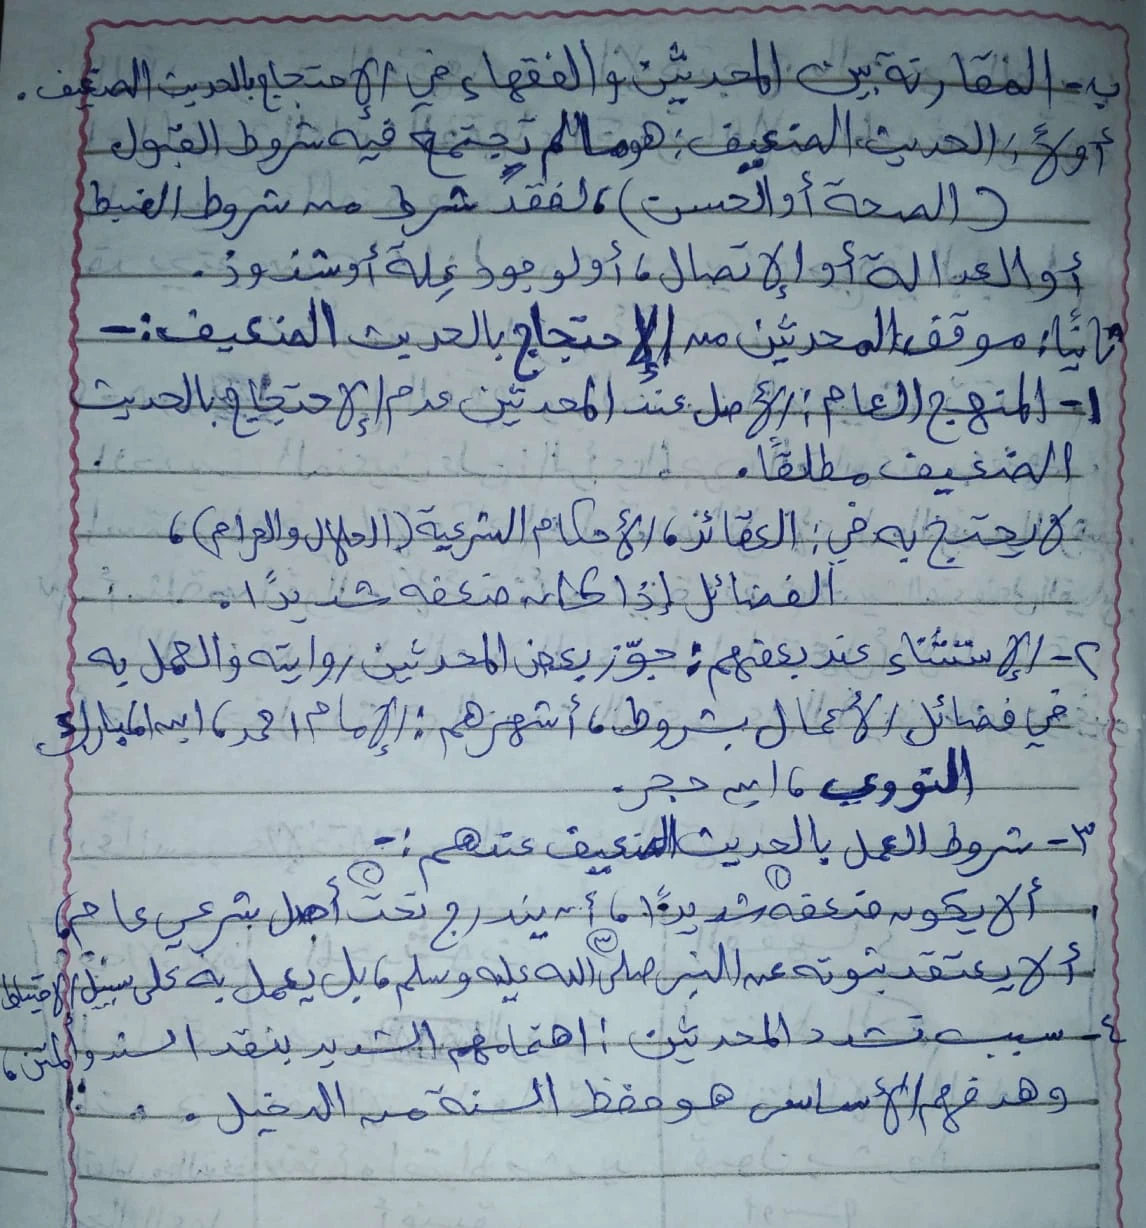 ب- المقارنة بين المحدثين والفقهاء في الإحتجاج بالحديث الضعيف.
أولاً: الحديث الضعيف: هو ما لم تجتمع فيه شروط القبول
(الصحة أو الحسن)، لفقد شرط من شروط الضبط
أو العدالة أو الإتصال، أو لوجود علة أو شذوذ.
ثانيًا: موقف المحدثين من الإحتجاج بالحديث الضعيف:-
١- المنهج العام: الأصل عند المحدثين عدم الإحتجاج بالحديث
الضعيف مطلقًا.
لا يحتج به في: العقائد، الأحكام الشرعية (الحلال والحرام)،
الفضائل إذا كان ضعفه شديدًا.
٢- الإستثناء عند بعضهم: جوّز بعض المحدثين روايته والعمل به
في فضائل الأعمال بشروط، أشهرهم: الإمام احمد، ابن المبارك
النووي، ابن حجر.
٣- شروط العمل بالحديث الضعيف عندهم:-
① ألا يكون ضعفه شديدًا، ② أن يندرج تحت أصل شرعي عام،
③ ألا يعتقد ثبوته عن النبي صلى الله عليه وسلم، بل يعمل به على سبيل الإحتياط
٤- سبب تشدد المحدثين: اهتمامهم الشديد بنقد السند والمتن،
وهدفهم الأساسي هو حفظ السنة من الدخيل.